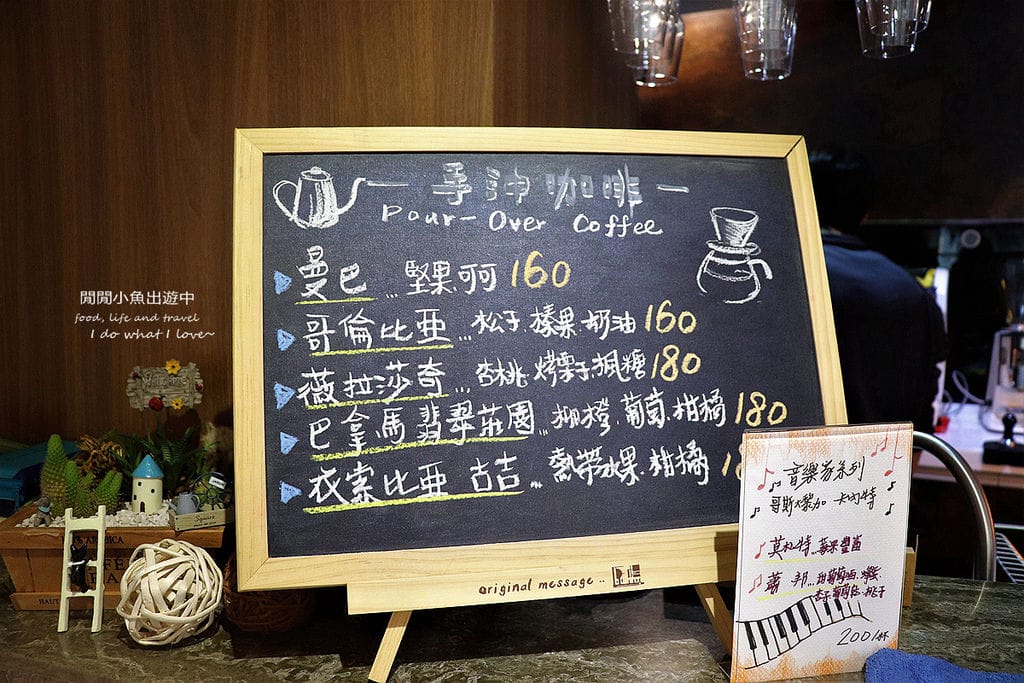 手沖咖啡
Pour-Over Coffee
曼巴...堅果.可可 160
哥倫比亞...松子.榛果.奶油 160
薇拉莎奇...杏桃.烤栗子.楓糖 180
巴拿馬翡翠莊園...柳橙.葡萄.柑橘 180
衣索比亞 古吉...熱帶水果.柑橘
original message..
閒閒小魚出遊中
food, life and travel
I do what I love~
音樂家系列
哥斯大黎加 卡內特
莫札特...莓果豐富
蕭邦...甜葡萄酒
200/杯